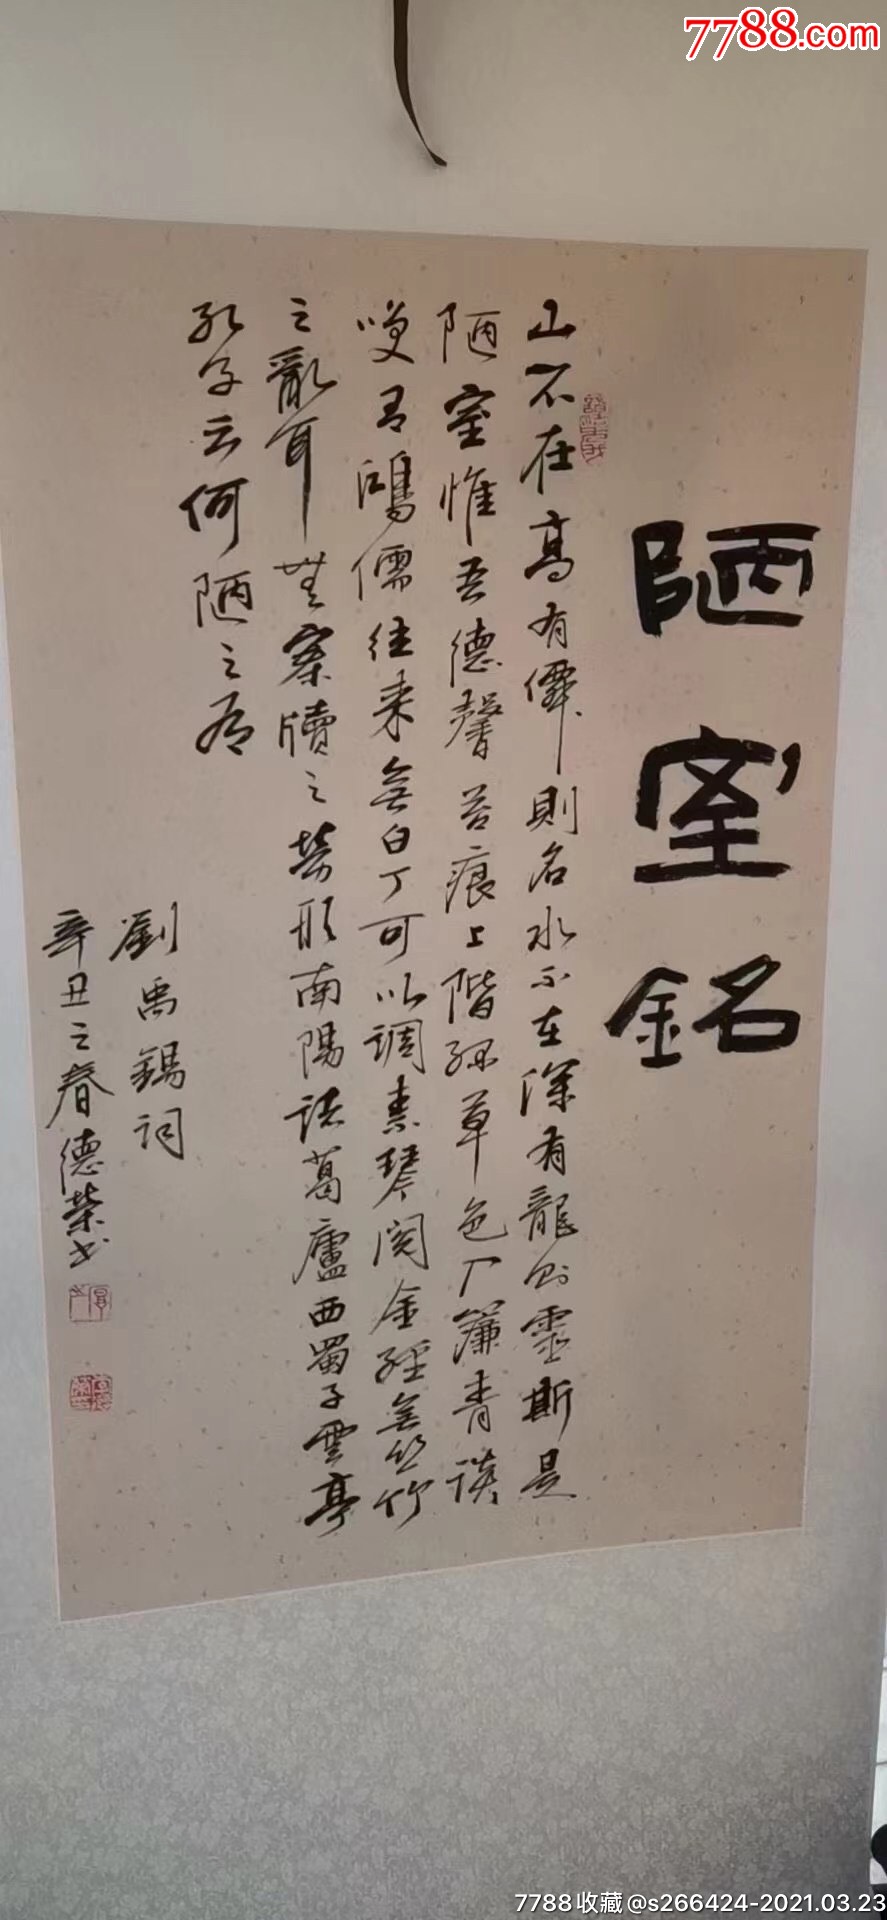 7788.com
陋室銘
山不在高有僊則名水不在深有龍则靈斯是
陋室惟吾德馨苔痕上階綠草色入簾青談
咲有鴻儒往来無白丁可以調素琴閱金經無丝竹
之亂耳無案牘之勞形南陽諸葛廬西蜀子雲亭
孔子云何陋之有
劉禹錫詞
辛丑之春德榮书
7788收藏@s266424-2021.03.23